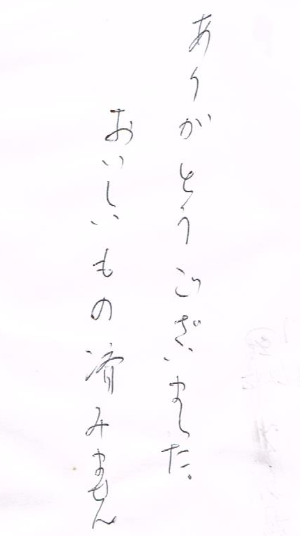 ありがとうございました。
おいしいもの済みません